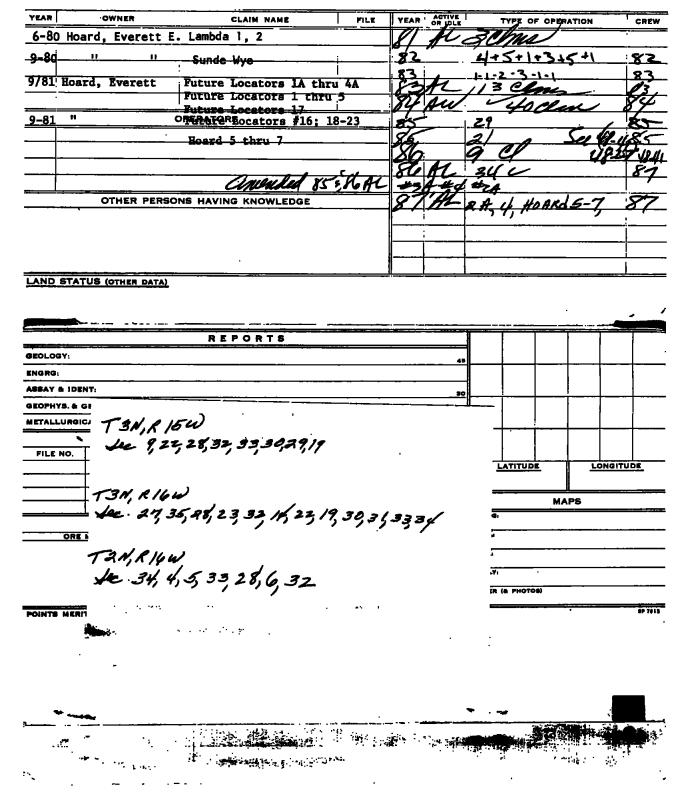 YEAR OWNER CLAIM NAME FILE YEAR ACTIVE OR IDLE TYPE OF OPERATION CREW
6-80 Hoard, Everett E. Lambda 1, 2 81 AL 3 Clms
9-80 " " Sunde Wye 82 4+5+1+3+5+1 82
83 1-1-2-3-1-1 83
9/81 Hoard, Everett Future Locators 1A thru 4A 83 AL 13 Clms 83
Future Locators 1 thru 5 84 AW 40 Clm 84
Future Locators 17
9-81 " Future Locators #16; 18-23 85 29 85
OPERATORS
Hoard 5 thru 7 86 21 See 85
86 9 Cl
86 AL 34 87
Amended 85 & 86 AL #3A #4 #2A
OTHER PERSONS HAVING KNOWLEDGE 87 AL 2A, 4, HOARD 5-7, 87
LAND STATUS (OTHER DATA)
REPORTS
GEOLOGY: 45
ENGRG:
ASSAY & IDENT: 30
GEOPHYS. & GE
METALLURGICA
T3N, R15W
Sec 9,22,28,32,33,30,29,19
FILE NO.
LATITUDE LONGITUDE
T3N, R16W
MAPS
Sec. 27,35,28,23,32,14,22,19,30,31,33,34
ORE
T2N, R16W
Sec. 34,4,5,33,28,6,32
ER (& PHOTOS)
POINTS MERIT SP 7013